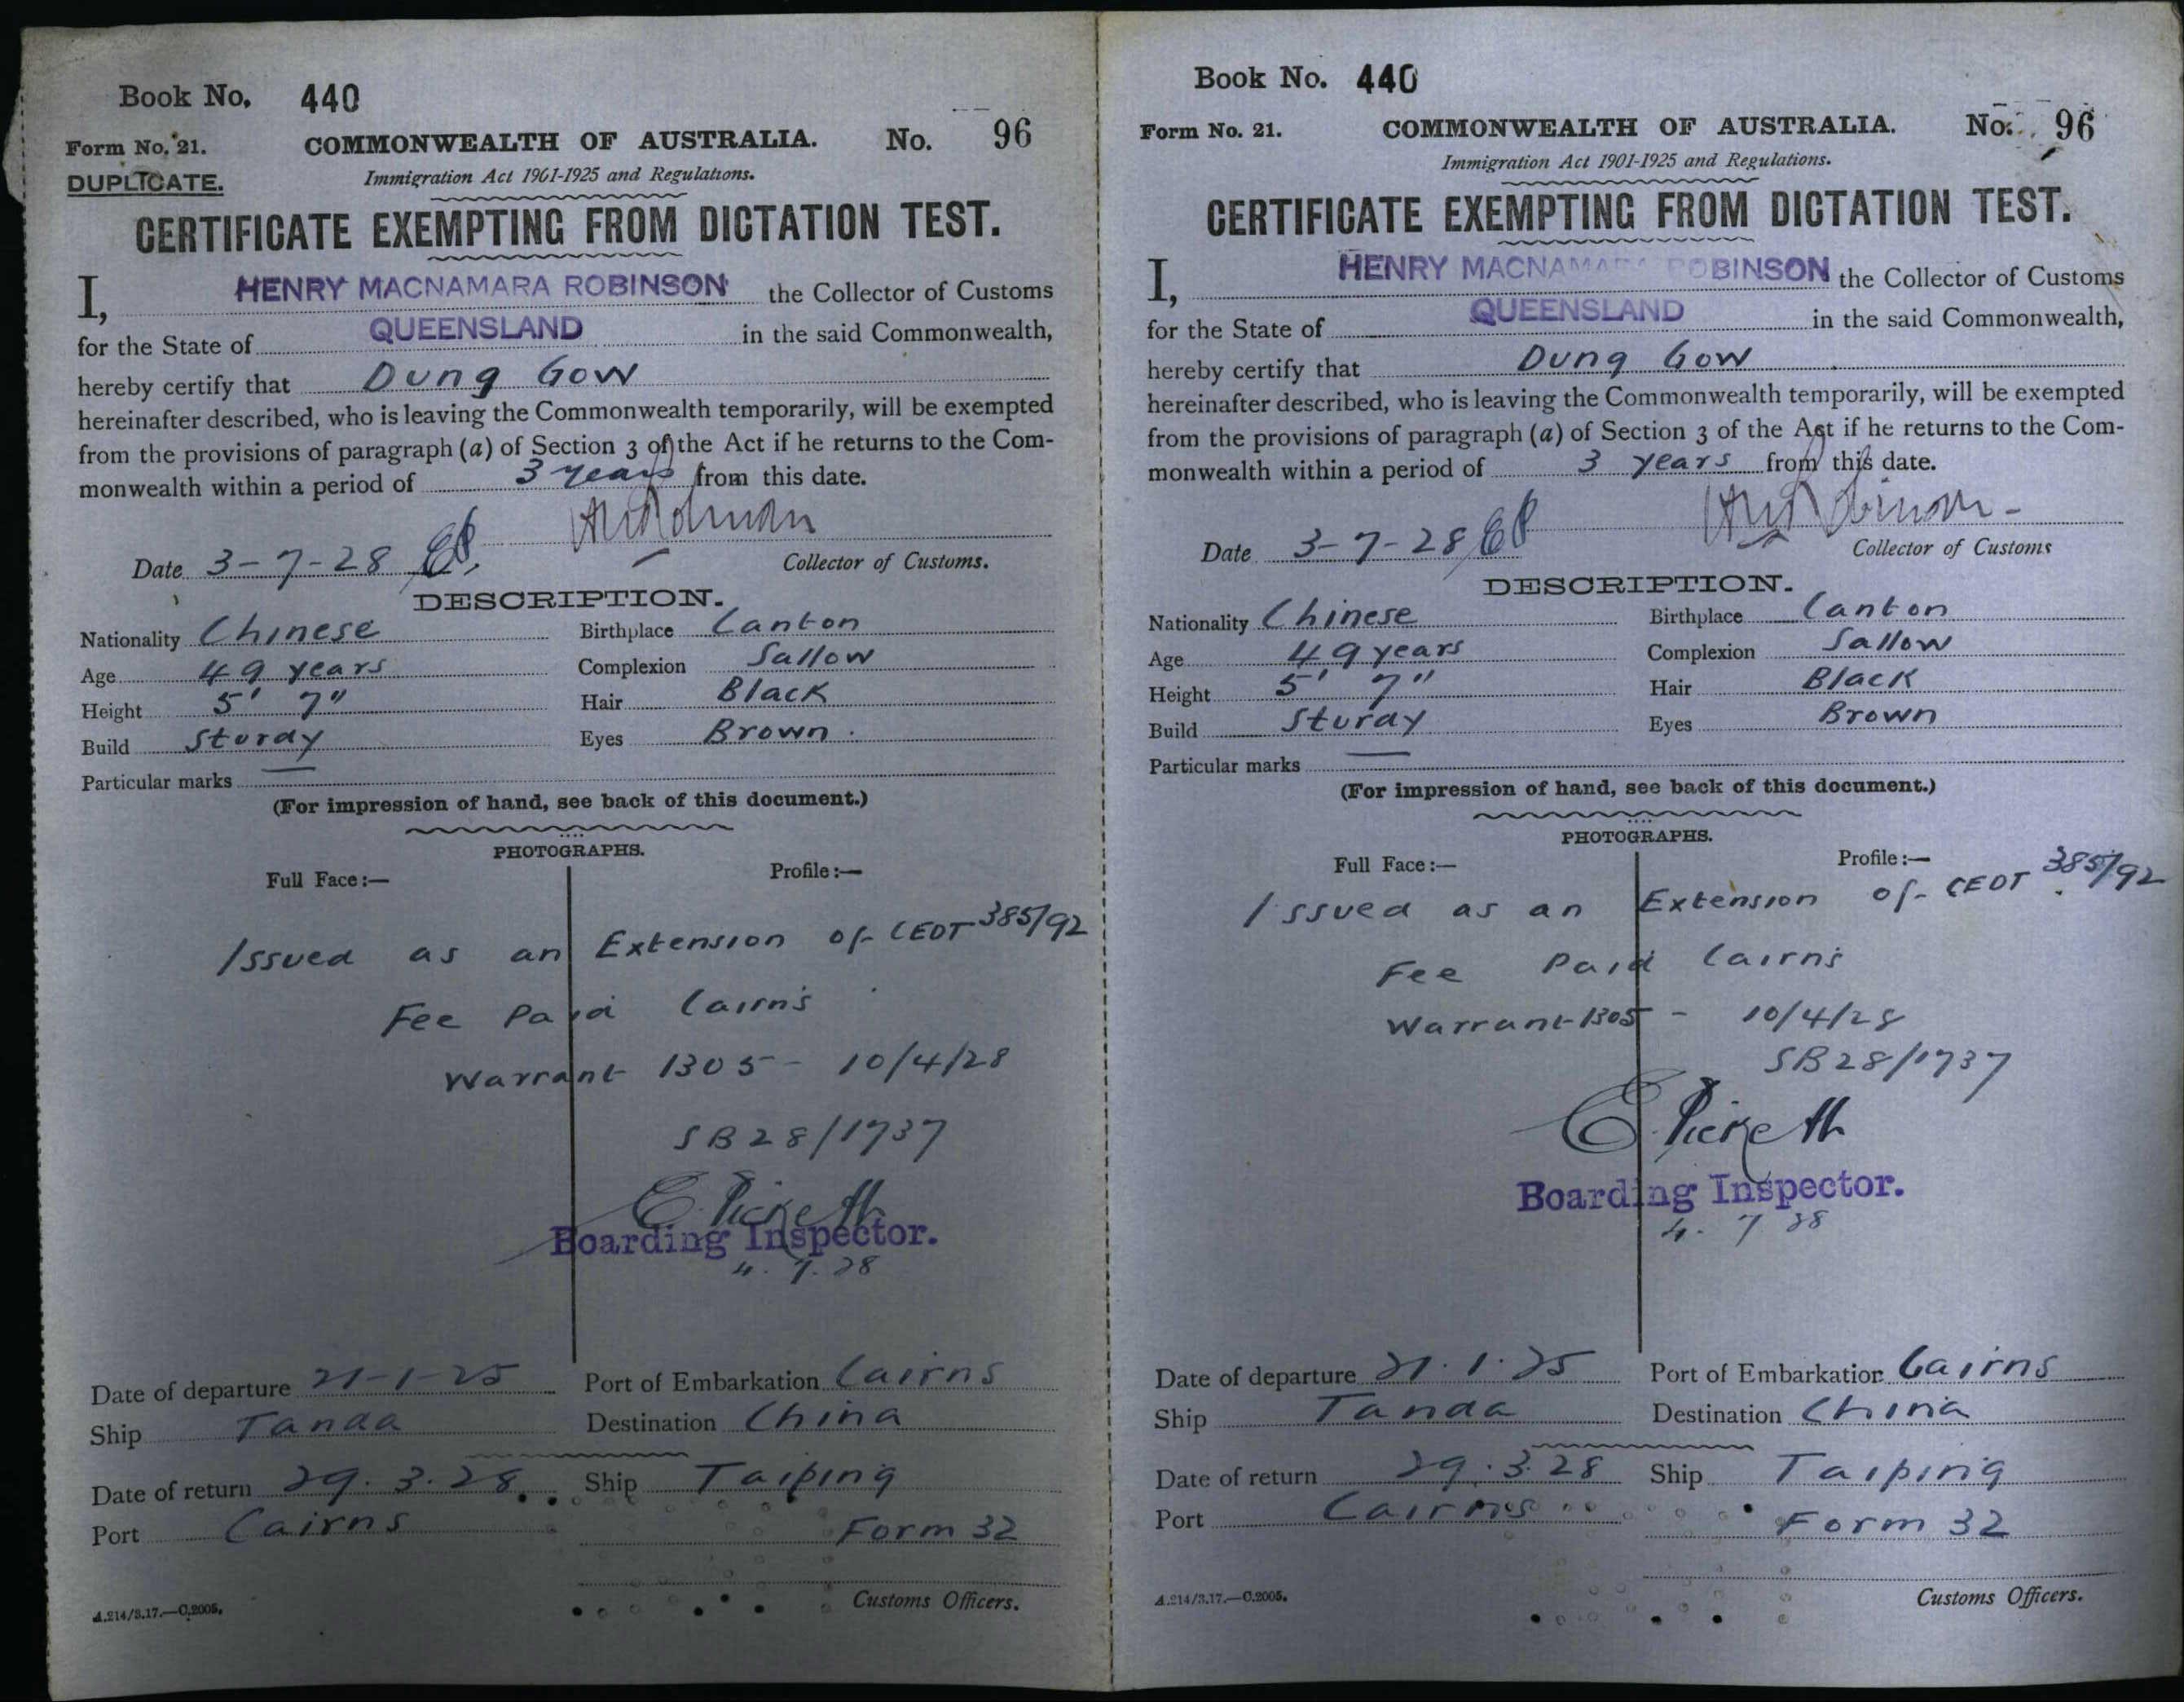 Book No. 440
Form No. 21. COMMONWEALTH OF AUSTRALIA. No. 96
DUPLICATE. Immigration Act 1901-1925 and Regulations.
CERTIFICATE EXEMPTING FROM DICTATION TEST.
I, HENRY MACNAMARA ROBINSON the Collector of Customs
for the State of QUEENSLAND in the said Commonwealth,
hereby certify that Dung Gow
hereinafter described, who is leaving the Commonwealth temporarily, will be exempted
from the provisions of paragraph (a) of Section 3 of the Act if he returns to the Com-
monwealth within a period of 3 years from this date.
HMRobinson
Date 3-7-28 EP. Collector of Customs.
DESCRIPTION.
Nationality Chinese Birthplace Canton
Age 49 years Complexion Sallow
Height 5' 7" Hair Black
Build Sturdy Eyes Brown.
Particular marks —
(For impression of hand, see back of this document.)
PHOTOGRAPHS.
Full Face:— Profile:—
Issued as an Extension of CEDT 385/92
Fee Paid Cairns
Warrant 1305 - 10/4/28
SB28/1737
E. Picketh
Boarding Inspector.
4. 7. 28
Date of departure 21-1-25 Port of Embarkation Cairns
Ship Tanda Destination China
Date of return 29.3.28. Ship Taiping
Port Cairns Form 32
A.214/3.17.—C.2005. Customs Officers.
Book No. 440
Form No. 21. COMMONWEALTH OF AUSTRALIA. No. 96
Immigration Act 1901-1925 and Regulations.
CERTIFICATE EXEMPTING FROM DICTATION TEST.
I, HENRY MACNAMARA ROBINSON the Collector of Customs
for the State of QUEENSLAND in the said Commonwealth,
hereby certify that Dung Gow
hereinafter described, who is leaving the Commonwealth temporarily, will be exempted
from the provisions of paragraph (a) of Section 3 of the Act if he returns to the Com-
monwealth within a period of 3 years from this date.
HMRobinson
Date 3-7-28 EP Collector of Customs
DESCRIPTION.
Nationality Chinese Birthplace Canton
Age 49 years Complexion Sallow
Height 5' 7" Hair Black
Build Sturdy Eyes Brown
Particular marks —
(For impression of hand, see back of this document.)
PHOTOGRAPHS.
Full Face:— Profile:—
Issued as an Extension of CEDT 385/92
Fee Paid Cairns
Warrant 1305 - 10/4/28
SB28/1737
E. Picketh
Boarding Inspector.
4. 7 28
Date of departure 21.1.25 Port of Embarkation Cairns
Ship Tanda Destination China
Date of return 29.3.28 Ship Taiping
Port Cairns Form 32
A.214/3.17.—C.2005. Customs Officers.